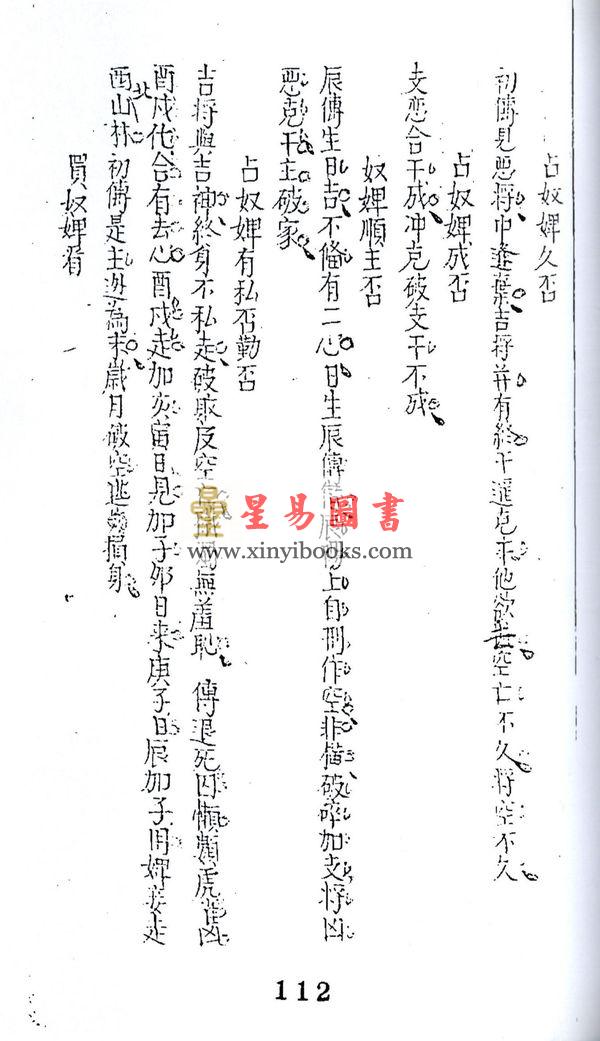 占奴婢久否
初傳見惡將中逢葉吉將并有終干遥克乖他欲去空亡不久將空不久
占奴婢成否
支恋合干成冲克破支干不成
奴婢順主否
辰傳生日吉不偹有二心日生辰傳上自刑作空非偹破碎加支將凶
惡克干主破家
占奴婢有私否勤否
吉將與吉神終身不私走破敗反空無羞恥 傳退死囚懶虎凶
酉戌化合有去心酉戌走加亥寅日見加子夘日来庚子日辰加子用婢妾走
西北山林初傳是主逃為末歲月破空逃損身
買奴婢看
星易圖書
www.xinyibooks.com
112